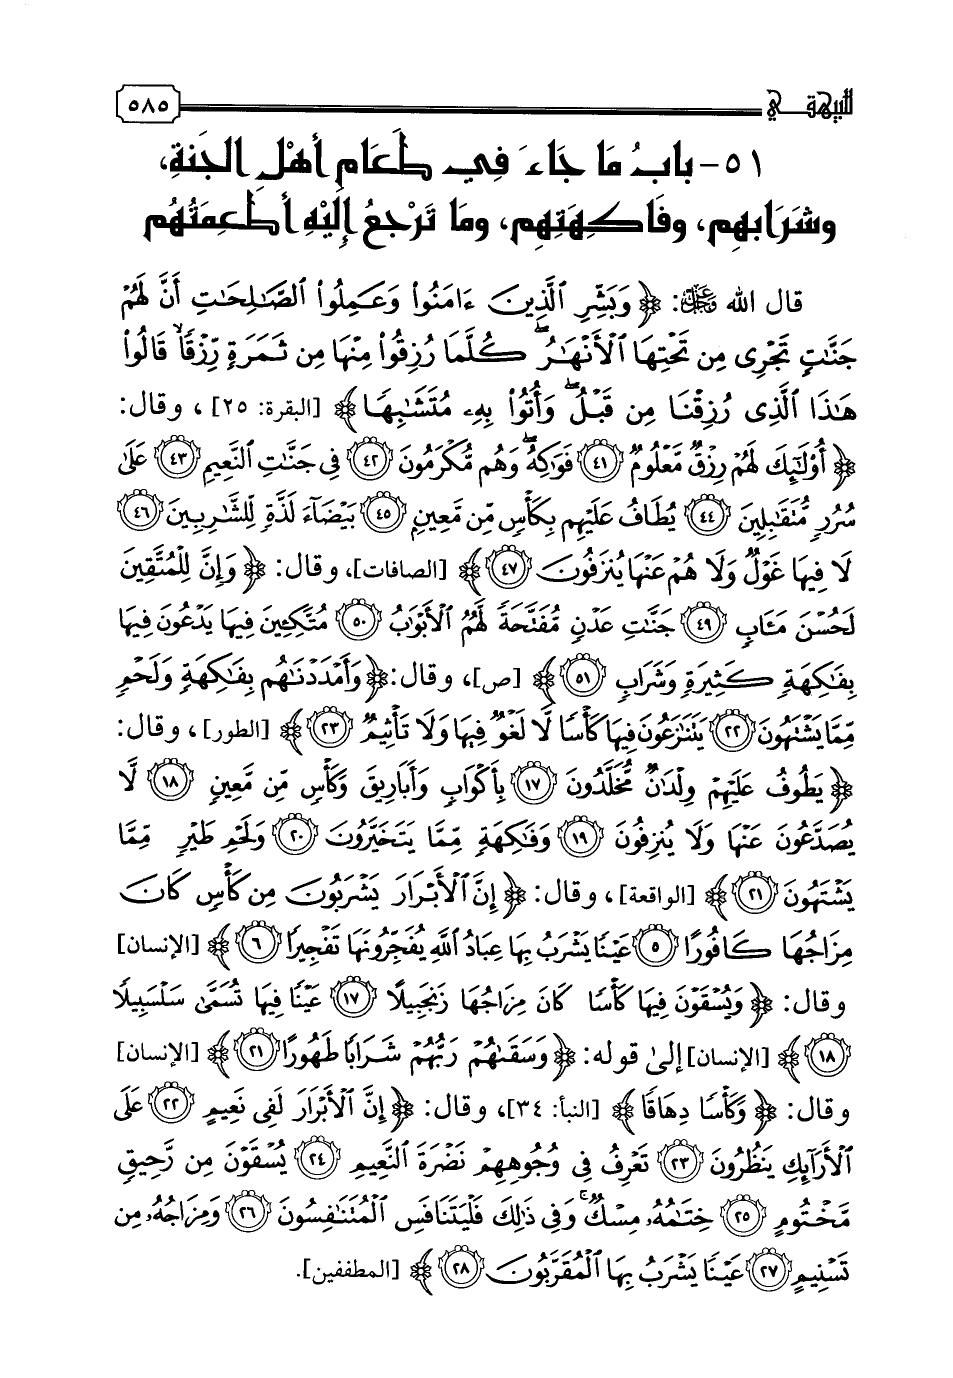 للبيهقـــي ٥٨٥
٥١- بابُ مَا جَاءَ فِي طَعَامِ أهْلِ الجَنةِ،
وشَرَابِهِم، وفَاكِهَتِهِم، ومَا تَرْجعُ إِلَيْهِ أطْعِمَتُهُم
قال الله ﷿: ﴿وَبَشِّرِ ٱلَّذِينَ ءَامَنُوا۟ وَعَمِلُوا۟ ٱلصَّـٰلِحَـٰتِ أَنَّ لَهُمْ
جَنَّـٰتٍ تَجْرِى مِن تَحْتِهَا ٱلْأَنْهَـٰرُ ۖ كُلَّمَا رُزِقُوا۟ مِنْهَا مِن ثَمَرَةٍ رِّزْقًا ۙ قَالُوا۟
هَـٰذَا ٱلَّذِى رُزِقْنَا مِن قَبْلُ ۖ وَأُتُوا۟ بِهِۦ مُتَشَـٰبِهًا﴾ [البقرة: ٢٥]، وقال:
﴿أُو۟لَـٰٓئِكَ لَهُمْ رِزْقٌ مَّعْلُومٌ ٤١ فَوَٰكِهُ ۖ وَهُم مُّكْرَمُونَ ٤٢ فِى جَنَّـٰتِ ٱلنَّعِيمِ ٤٣ عَلَىٰ
سُرُرٍ مُّتَقَـٰبِلِينَ ٤٤ يُطَافُ عَلَيْهِم بِكَأْسٍ مِّن مَّعِينٍۭ ٤٥ بَيْضَآءَ لَذَّةٍ لِّلشَّـٰرِبِينَ ٤٦
لَا فِيهَا غَوْلٌ وَلَا هُمْ عَنْهَا يُنزَفُونَ ٤٧﴾ [الصافات]، وقال: ﴿وَإِنَّ لِلْمُتَّقِينَ
لَحُسْنَ مَـَٔابٍ ٤٩ جَنَّـٰتِ عَدْنٍ مُّفَتَّحَةً لَّهُمُ ٱلْأَبْوَٰبُ ٥٠ مُتَّكِـِٔينَ فِيهَا يَدْعُونَ فِيهَا
بِفَـٰكِهَةٍ كَثِيرَةٍ وَشَرَابٍ ٥١﴾ [ص]، وقال: ﴿وَأَمْدَدْنَـٰهُم بِفَـٰكِهَةٍ وَلَحْمٍ
مِّمَّا يَشْتَهُونَ ٢٢ يَتَنَـٰزَعُونَ فِيهَا كَأْسًا لَّا لَغْوٌ فِيهَا وَلَا تَأْثِيمٌ ٢٣﴾ [الطور]، وقال:
﴿يَطُوفُ عَلَيْهِمْ وِلْدَٰنٌ مُّخَلَّدُونَ ١٧ بِأَكْوَابٍ وَأَبَارِيقَ وَكَأْسٍ مِّن مَّعِينٍ ١٨ لَّا
يُصَدَّعُونَ عَنْهَا وَلَا يُنزِفُونَ ١٩ وَفَـٰكِهَةٍ مِّمَّا يَتَخَيَّرُونَ ٢٠ وَلَحْمِ طَيْرٍ مِّمَّا
يَشْتَهُونَ ٢١﴾ [الواقعة]، وقال: ﴿إِنَّ ٱلْأَبْرَارَ يَشْرَبُونَ مِن كَأْسٍ كَانَ
مِزَاجُهَا كَافُورًا ٥ عَيْنًا يَشْرَبُ بِهَا عِبَادُ ٱللَّهِ يُفَجِّرُونَهَا تَفْجِيرًا ٦﴾ [الإنسان]
وقال: ﴿وَيُسْقَوْنَ فِيهَا كَأْسًا كَانَ مِزَاجُهَا زَنجَبِيلًا ١٧ عَيْنًا فِيهَا تُسَمَّىٰ سَلْسَبِيلًا
١٨﴾ [الإنسان] إلىٰ قوله: ﴿وَسَقَىٰهُمْ رَبُّهُمْ شَرَابًا طَهُورًا ٢١﴾ [الإنسان]
وقال: ﴿وَكَأْسًا دِهَاقًا﴾ [النبأ: ٣٤]، وقال: ﴿إِنَّ ٱلْأَبْرَارَ لَفِى نَعِيمٍ ٢٢ عَلَى
ٱلْأَرَآئِكِ يَنظُرُونَ ٢٣ تَعْرِفُ فِى وُجُوهِهِمْ نَضْرَةَ ٱلنَّعِيمِ ٢٤ يُسْقَوْنَ مِن رَّحِيقٍ
مَّخْتُومٍ ٢٥ خِتَـٰمُهُۥ مِسْكٌ ۚ وَفِى ذَٰلِكَ فَلْيَتَنَافَسِ ٱلْمُتَنَـٰفِسُونَ ٢٦ وَمِزَاجُهُۥ مِن
تَسْنِيمٍ ٢٧ عَيْنًا يَشْرَبُ بِهَا ٱلْمُقَرَّبُونَ ٢٨﴾ [المطففين].